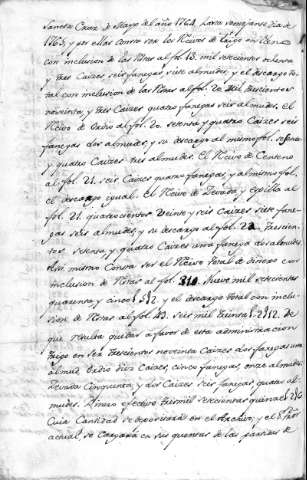 Santa Cruz de Mayo del año 1764. hasta semejante dia de
1765, y por ellas consta ser los Recivos de trigo en
con inclusion de las Restas al fol. 13. mil setecientos ochenta
y tres Caizes seis fanegas, siete almudes, y el descargo to-
tal con inclusion de las Restas al fol. 20. mil trescientos
noventa, y tres Caizes quatro fanegas seis almudes. El
Recivo de Ordio al fol. 20. setenta y quatro Caizes seis
fanegas dos almudes, y su descargo al mismo fol. sesenta
y quatro Caizes tres almudes. El Recivo de Centeno
al fol. 21. seis Caizes quatro fanegas, y al mismo fol.
el descargo igual. El Recivo de Zevada, y espilla al
fol. 21. quatrocientos veinte y seis Caizes siete fane-
gas seis almudes, y su descargo al fol. 22. trescien-
tos setenta y quatro Caizes una fanega dos almudes.
Assi mismo Consta ser el Recivo total de dinero con
inclusion de Restas al fol. Nueve mil setecientas
quarenta y cinco £ 5 ß 2, y el descargo total con inclu-
sion de Restas al fol. 43. seis mil treinta £ 2 ß 12. de
que resulta quedar a favor de esta administracion
trigo en ser trescientos noventa Caizes dos fanegas un
almud. Ordio diez Caizes, cinco fanegas once almudes
Zevada Cinquenta, y dos Caizes seis fanegas quatro al-
mudes. Dinero efectivo tresmil setecientas quince £
Cuia Cantidad se depositará en el Archivo, y el Sr.
actual, se Cargará en sus quentas de las partidas de